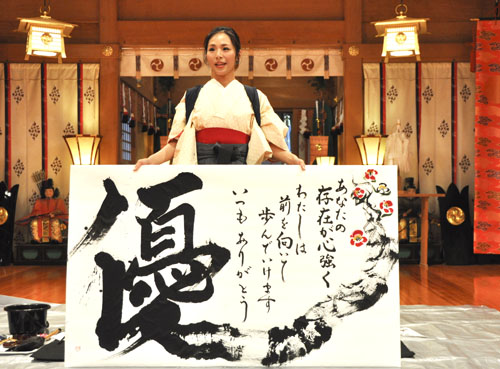 優
あなたの
存在が心強く
わたしは
前を向いて
歩んでいけます
いつもありがとう